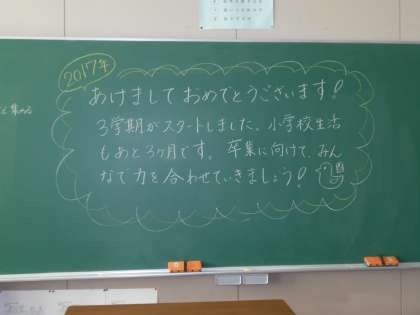 2017年
あけましておめでとうございます！
3学期がスタートしました。小学校生活
もあと3ヶ月です。卒業に向けて、みん
なで力を合わせていきましょう！